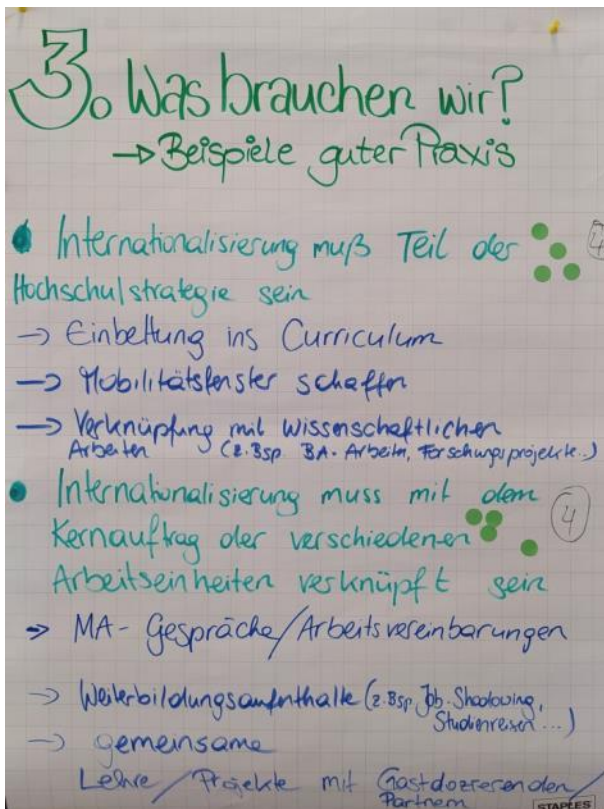 3. Was brauchen wir?
→ Beispiele guter Praxis
• Internationalisierung muß Teil der
Hochschulstrategie sein
→ Einbettung ins Curriculum
→ Mobilitätsfenster schaffen
→ Verknüpfung mit wissenschaftlichen
Arbeiten (z.Bsp BA-Arbeiten, Forschungsprojekte..)
• Internationalisierung muss mit dem
Kernauftrag der verschiedenen 4
Arbeitseinheiten verknüpft sein
→ MA-Gespräche/Arbeitsvereinbarungen
→ Weiterbildungsaufenthalte (z.Bsp. Job-Shadowing,
Studienreisen...)
→ gemeinsame
Lehre/Projekte mit Gastdozierenden/
Partnern
STAPLES